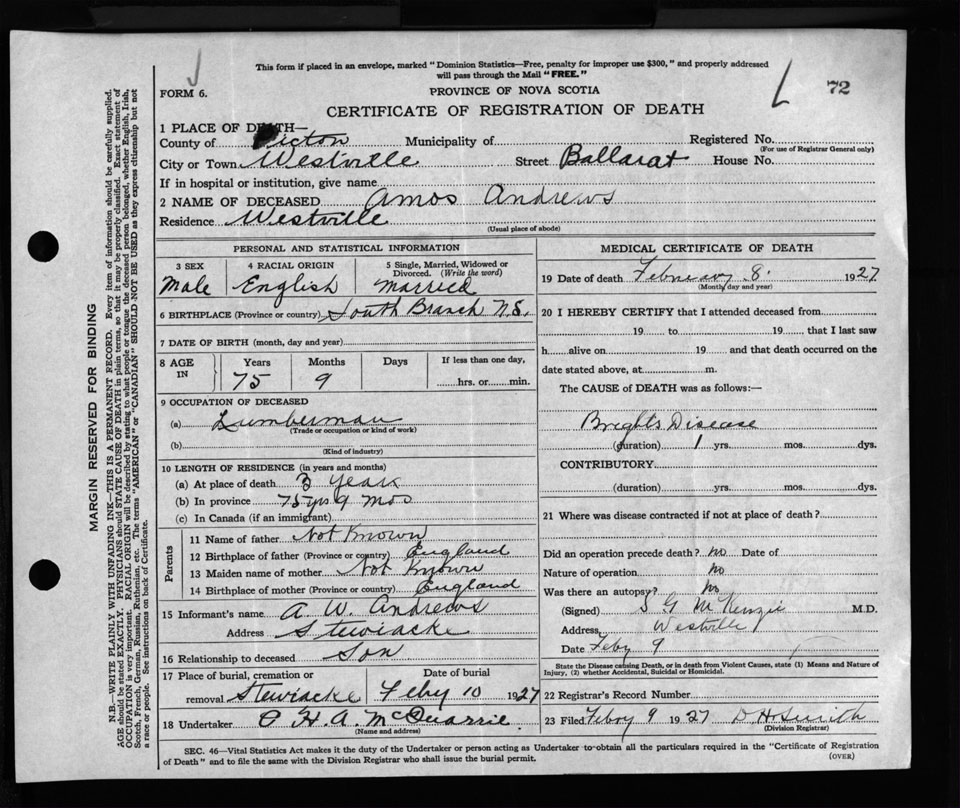 This form if placed in an envelope, marked "Dominion Statistics—Free, penalty for improper use $300," and properly addressed
will pass through the Mail "FREE."
72
FORM 6.
PROVINCE OF NOVA SCOTIA
CERTIFICATE OF REGISTRATION OF DEATH
1 PLACE OF DEATH—
County of Pictou Municipality of Registered No.
(For use of Registrar General only)
City or Town Westville Street Ballarat House No.
If in hospital or institution, give name
2 NAME OF DECEASED Amos Andrews
Residence Westville
(Usual place of abode)
PERSONAL AND STATISTICAL INFORMATION
3 SEX 4 RACIAL ORIGIN 5 Single, Married, Widowed or
Divorced. (Write the word)
Male English Married
6 BIRTHPLACE (Province or country) South Branch N.S.
7 DATE OF BIRTH (month, day and year)
8 AGE IN Years Months Days If less than one day,
75 9 hrs. or min.
9 OCCUPATION OF DECEASED
(a) Lumberman
(Trade or occupation or kind of work)
(b)
(Kind of industry)
10 LENGTH OF RESIDENCE (in years and months)
(a) At place of death 3 years
(b) In province 75 yrs 9 mos
(c) In Canada (if an immigrant)
Parents
11 Name of father Not Known
12 Birthplace of father (Province or country) England
13 Maiden name of mother Not Known
14 Birthplace of mother (Province or country) England
15 Informant's name A. W. Andrews
Address Stewiacke
16 Relationship to deceased Son
17 Place of burial, cremation or Date of burial
removal Stewiacke Feby 10 1927
18 Undertaker H. A. McQuarrie
(Name and address)
MEDICAL CERTIFICATE OF DEATH
19 Date of death February 8 1927
(Month, day and year)
20 I HEREBY CERTIFY that I attended deceased from
19 to 19 that I last saw
h alive on 19 and that death occurred on the
date stated above, at m.
The CAUSE of DEATH was as follows:—
Brights Disease
(duration) 1 yrs. mos. dys.
CONTRIBUTORY
(duration) yrs. mos. dys.
21 Where was disease contracted if not at place of death?
Did an operation precede death? no Date of
Nature of operation no
Was there an autopsy? no
(Signed) S G McKenzie M.D.
Address Westville
Date Feby 9
State the Disease causing Death, or in death from Violent Causes, state (1) Means and Nature of
Injury, (2) whether Accidental, Suicidal or Homicidal.
22 Registrar's Record Number
23 Filed Febry 9 1927 D H Smith
(Division Registrar)
SEC. 46—Vital Statistics Act makes it the duty of the Undertaker or person acting as Undertaker to obtain all the particulars required in the "Certificate of Registration
of Death" and to file the same with the Division Registrar who shall issue the burial permit.
(OVER)
MARGIN RESERVED FOR BINDING
N.B.—WRITE PLAINLY WITH UNFADING INK—THIS IS A PERMANENT RECORD. Every item of information should be carefully supplied.
AGE should be stated EXACTLY. PHYSICIANS should STATE CAUSE OF DEATH in plain terms, so that it may be properly classified. Exact statement of
OCCUPATION is very important. RACIAL ORIGIN will be described by stating to what people or tongue the deceased person belonged, whether English, Irish,
Scotch, French, German, Russian, Ruthenian, etc. The terms "AMERICAN" or "CANADIAN" SHOULD NOT BE USED as they express citizenship but not
a race or people. See instructions on back of Certificate.